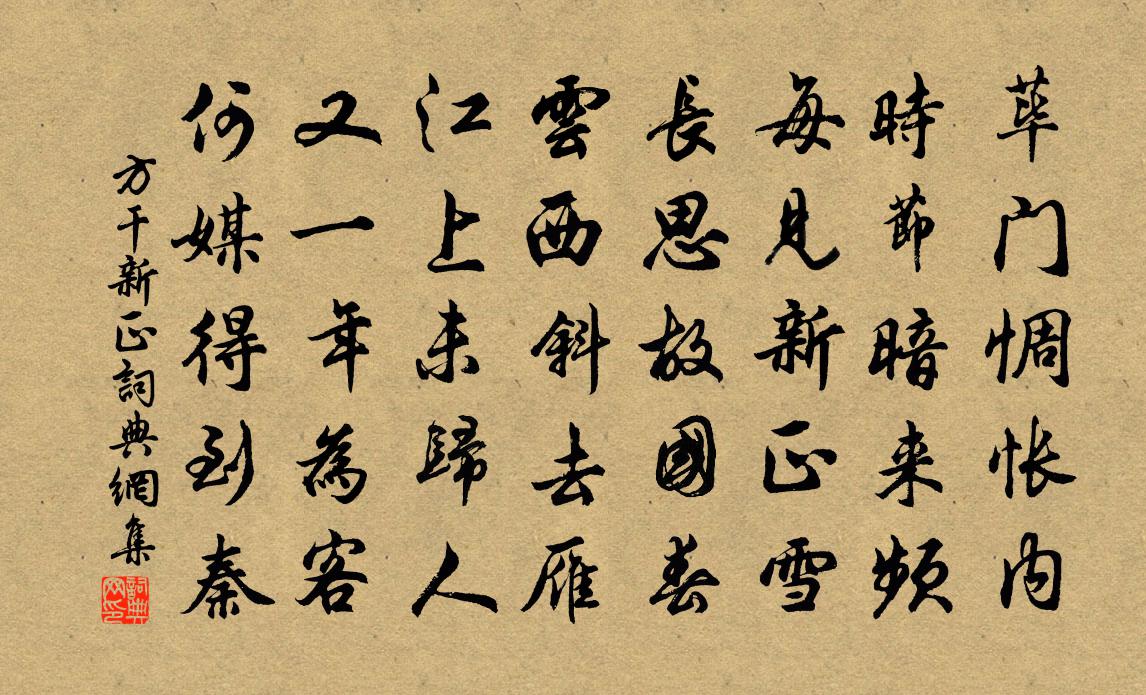 蓽门惆怅内
時節暗来頻
每見新正雪
長思故國春
雲西斜去雁
江上未歸人
又一年為客
何媒得到秦
方干新正詞典網集
詞典网印